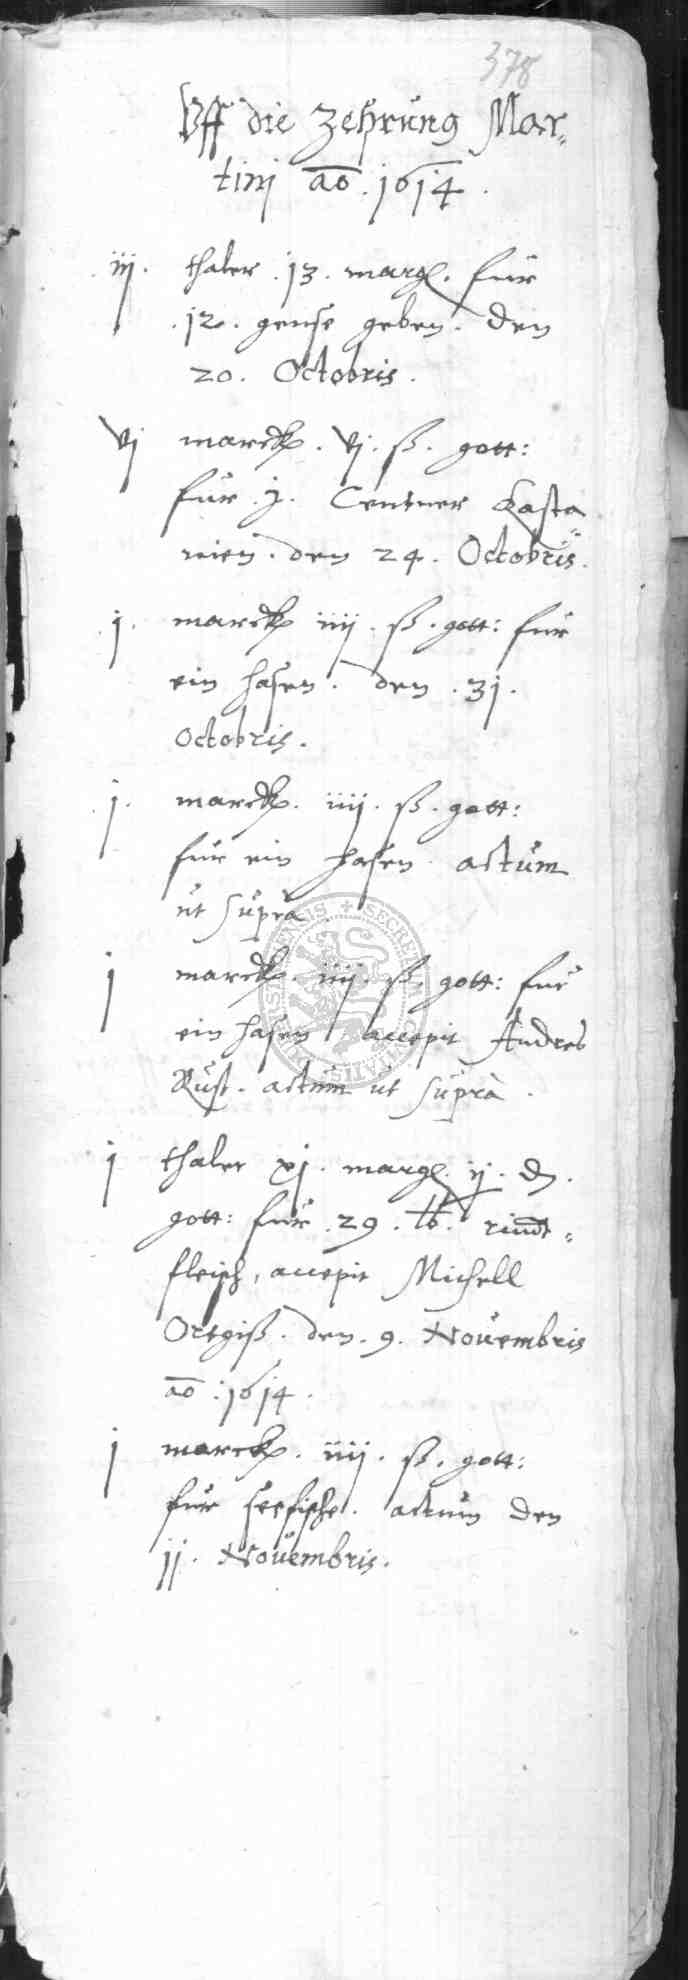 378
Vff die Zehrung Mar„
tini ao. 1614.
iij. thaler .13. margl. fur
.12. gense geben. den
20. Octobris.
vj marck. vj. ß. gott:
fur .j. Centner Kasta„
nien. den 24. Octobris.
j. marck iiij. ß. gott: fur
ein hasen. den .31.
Octobris.
j. marck. iiij. ß. gott:
fur ein hasen. actum
ut supra
j marck. iiij. ß. gott: fur
ein hasen accepit Andres
Rust. actum ut supra.
SECRETUM CIVITATIS
j thaler xj. margl. ij. d.
gott: fur .29. lb. rindt„
fleisch, accepit Michell
Ortgiß. den .9. Novembris
ao .1614.
j marck. iiij. ß. gott:
fur seefische. actum den
jj. Novembris.